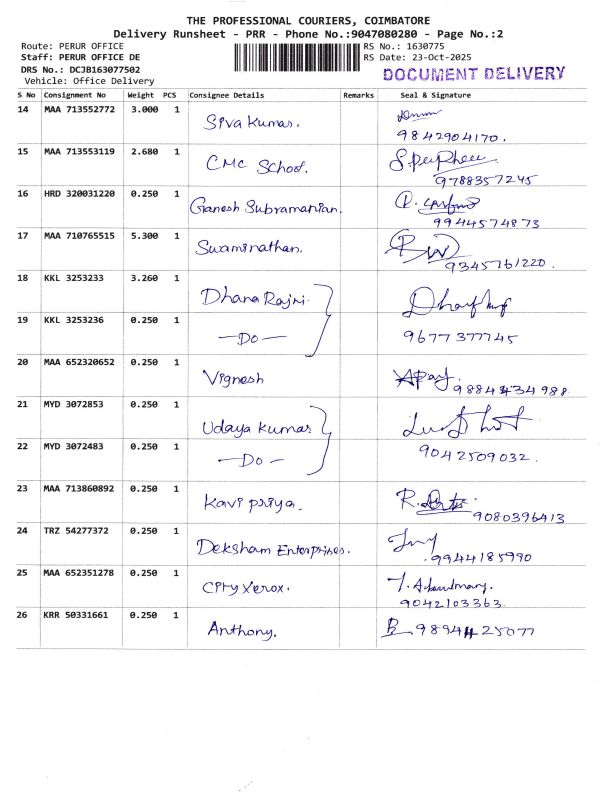 THE PROFESSIONAL COURIERS, COIMBATORE
Delivery Runsheet - PRR - Phone No.:9047080280 - Page No.:2
Route: PERUR OFFICE
RS No.: 1630775
Staff: PERUR OFFICE DE
RS Date: 23-Oct-2025
DRS No.: DCJB163077502
DOCUMENT DELIVERY
Vehicle: Office Delivery
S No Consignment No Weight PCS Consignee Details Remarks Seal & Signature
14 MAA 713552772 3.000 1 Siva Kumar.
9842904170.
15 MAA 713553119 2.680 1 CMC School.
9788357245
16 HRD 320031220 0.250 1 Ganesh Subramanian.
9944574873
17 MAA 710765515 5.300 1 Swaminathan.
9345761220.
18 KKL 3253233 3.260 1 Dhana Rajni.
19 KKL 3253236 0.250 1 —Do—
9677377745
20 MAA 652320652 0.250 1 Vignesh
9884434988
21 MYD 3072853 0.250 1 Udaya Kumar
22 MYD 3072483 0.250 1 —Do—
9042509032.
23 MAA 713860892 0.250 1 Kavi priya.
9080396413
24 TRZ 54277372 0.250 1 Deksham Enterprises.
9944185990
25 MAA 652351278 0.250 1 City Xerox.
9042103363.
26 KRR 50331661 0.250 1 Anthony.
9894425077